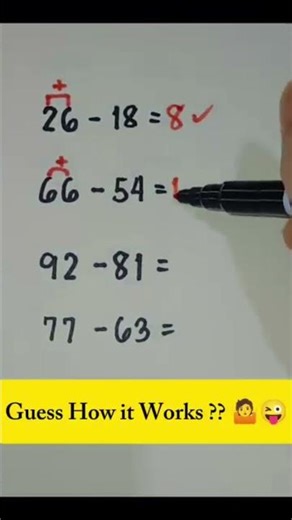 +
26 - 18 = 8 ✓
+
66 - 54 =
92 - 81 =
77 - 63 =
Guess How it Works ?? 🤷😜